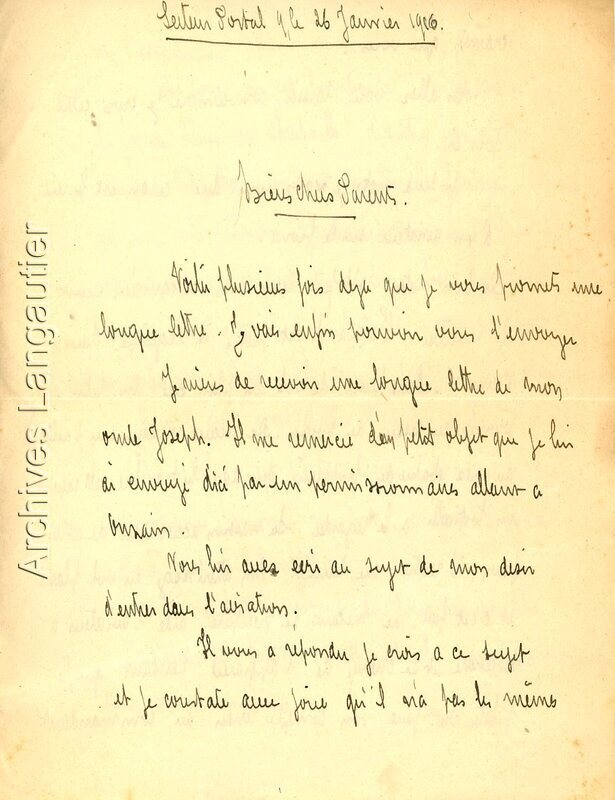 Secteur Postal 9, le 26 Janvier 1916.
Biens chers Parents.
Voilà plusieurs fois deja que je vous promets une
longue lettre. Je vais enfin pouvoir vous l'envoyer
Je viens de recevoir une longue lettre de mon
oncle Joseph. Il me remercie d'un petit objet que je lui
ai envoyé dici par un permissionnaires allant a
Onzain
Vous lui avez ecri au sujet de mon desir
d'entrer dans l'aviation.
Il vous a repondu je crois a ce sujet
et je constate avec joie qu'il n'a pas les mêmes
Archives Langautier